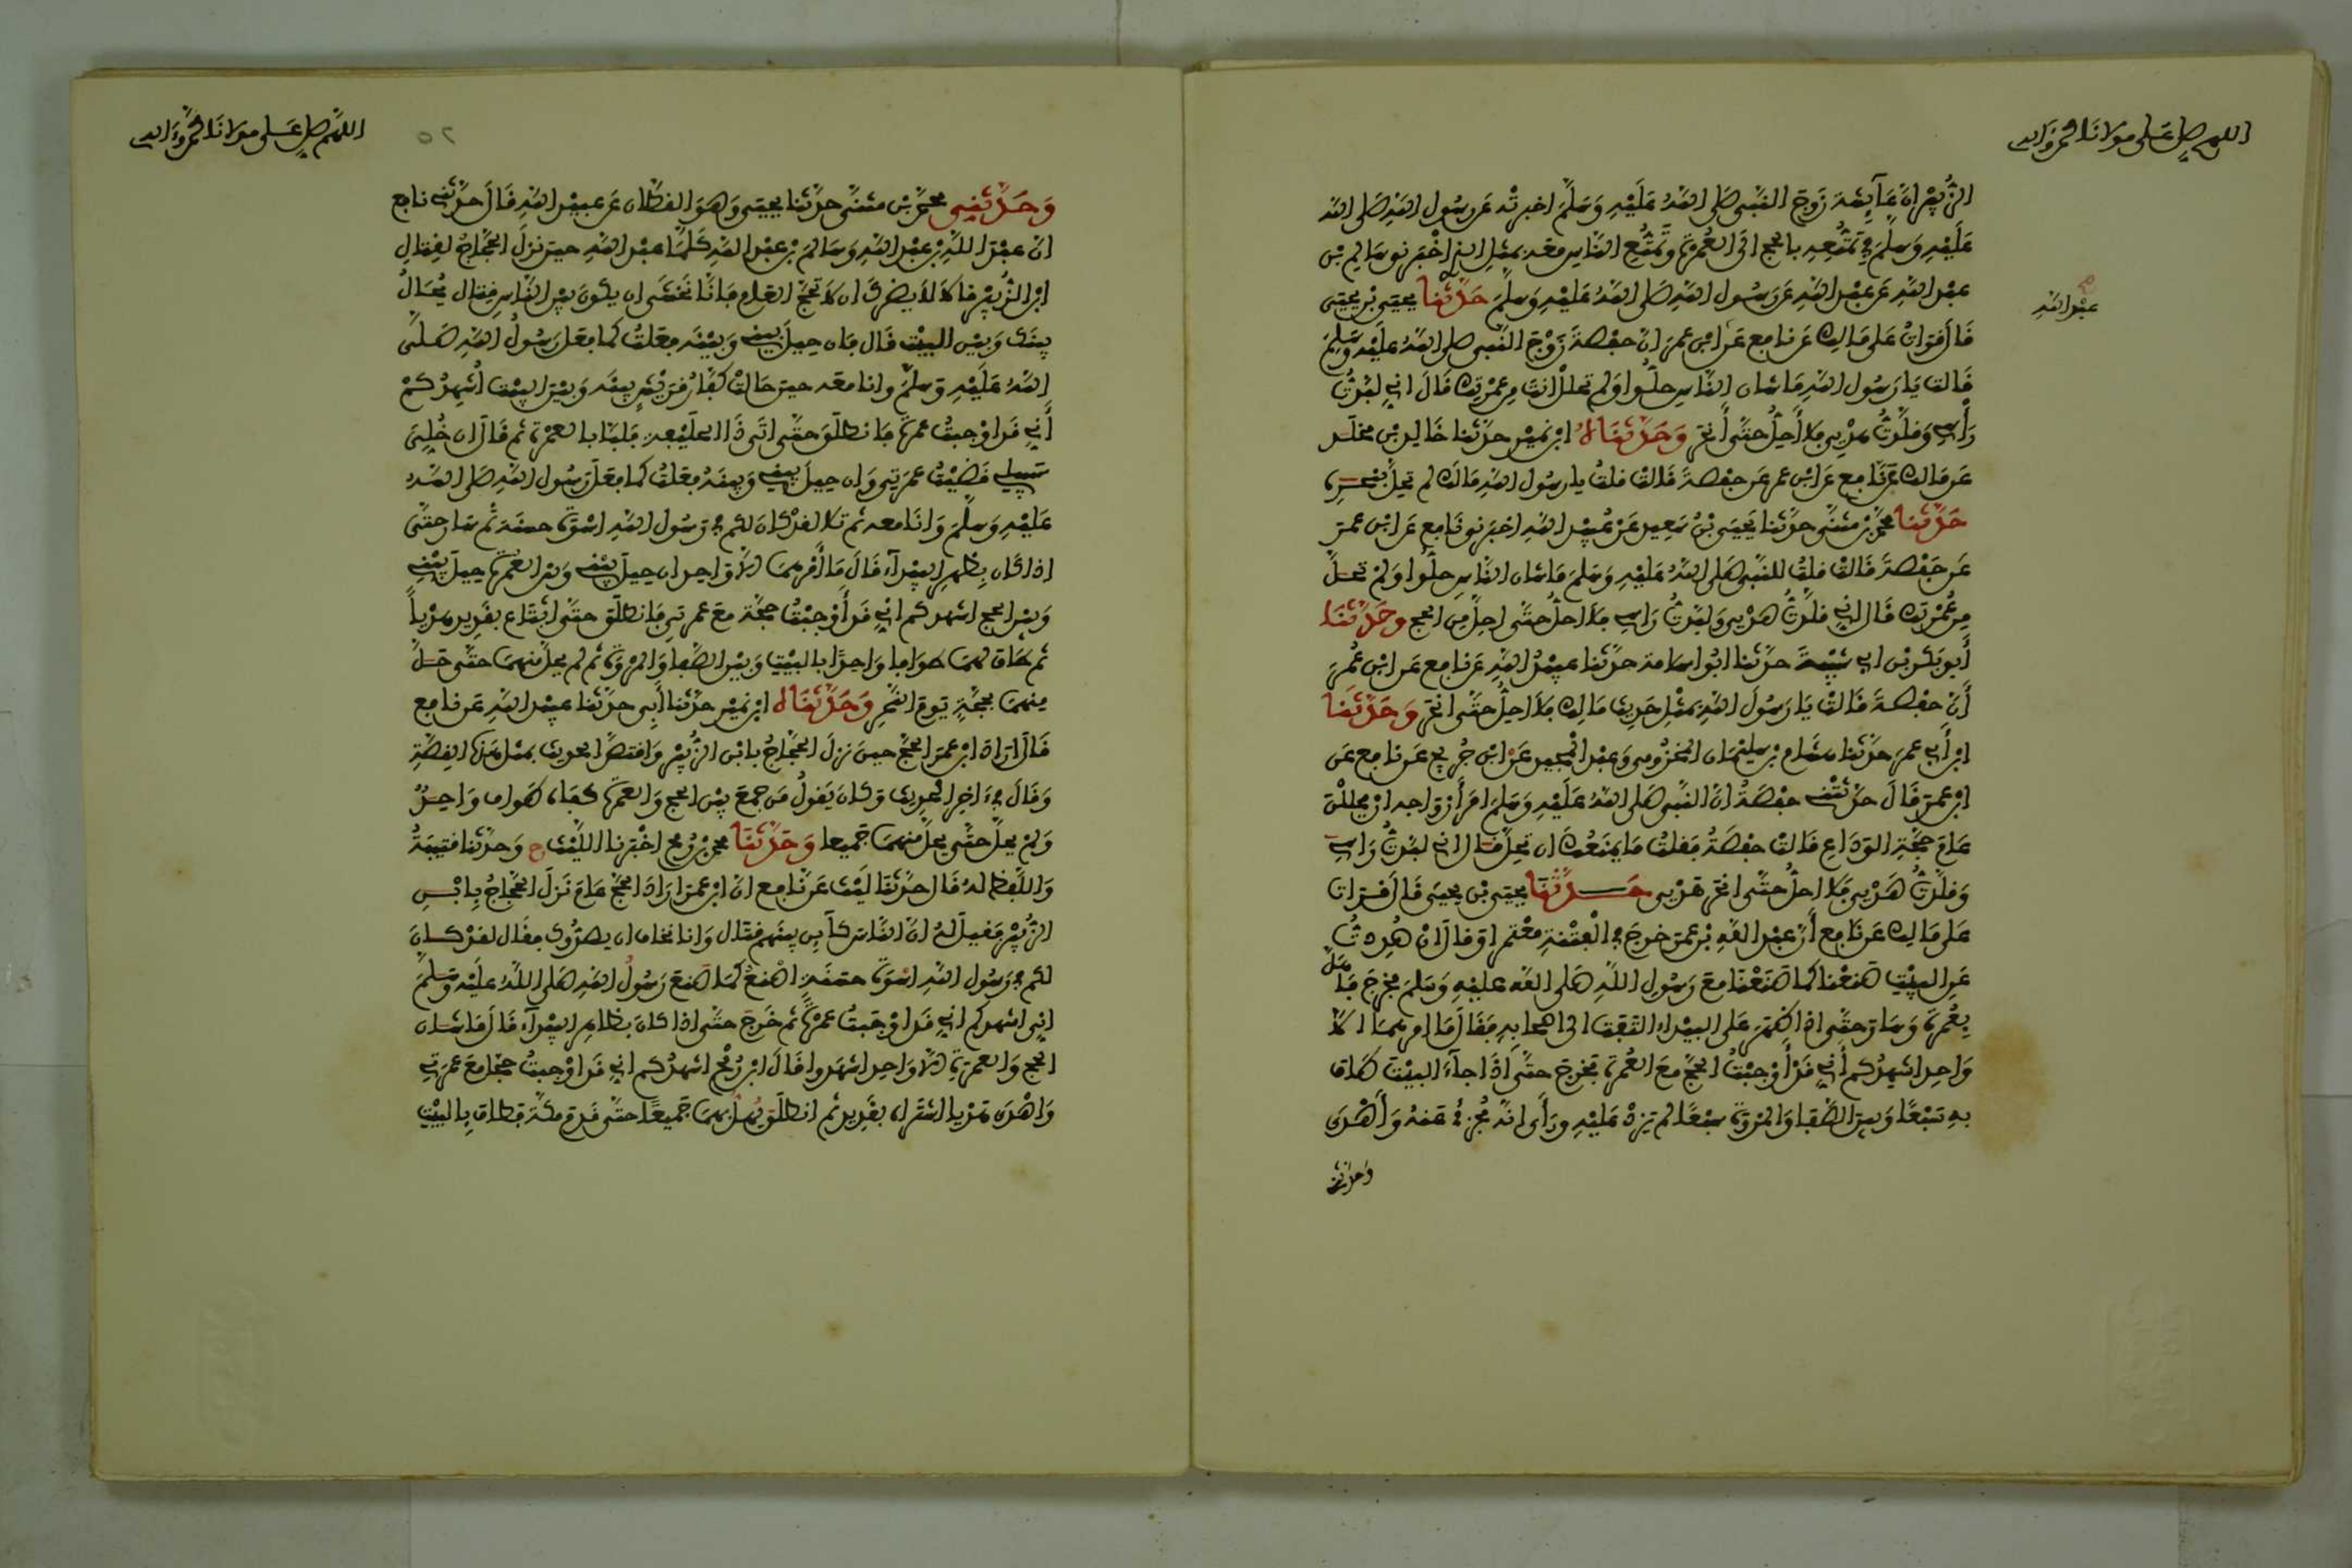 اللهم صل على مولانا محمد واله
الزبير ان عايشة زوج النبي صلى الله عليه وسلم اخبرته عن رسول الله صلى الله
عليه وسلم في تمتعه بالحج الى العمرة وتمتع الناس معه بمثل الذي اخبرنى سالم بن
عبد الله عن عبد الله عن رسول الله صلى الله عليه وسلم حدثنا يحيى بن يحيى
عبد الله
قال قرات على مالك عن نافع عن ابن عمر ان حفصة زوج النبي صلى الله عليه وسلم
قالت يا رسول الله ما شان الناس حلوا ولم تحلل انت من عمرتك قال اني لبدت
راسي وقلدت هديي فلا احل حتى انحر وحدثناه ابن نمير حدثنا خالد بن مخلد
عن مالك عن نافع عن ابن عمر عن حفصة قالت قلت يا رسول الله مالك لم تحل بنحوه
حدثنا محمد بن مثنى حدثنا يحيى بن سعيد عن عبيد الله اخبرنى نافع عن ابن عمر
عن حفصة قالت قلت للنبي صلى الله عليه وسلم ما شان الناس حلوا ولم تحل
من عمرتك قال اني قلدت هديي ولبدت راسي فلا احل حتى احل من الحج وحدثنا
أبو بكر بن ابي شيبة حدثنا ابو اسامة حدثنا عبيد الله عن نافع عن ابن عمر
أن حفصة قالت يا رسول الله بمثل حديث مالك فلا احل حتى انحر وحدثنا
ابن أبي عمر حدثنا هشام بن سليمان المخزومي وعبد المجيد عن ابن جريج عن نافع عن
ابن عمر قال حدثتني حفصة ان النبي صلى الله عليه وسلم امر أزواجه ان يحللن
عام حجة الوداع قالت حفصة فقلت ما يمنعك ان تحل قال اني لبدت راسي
وقلدت هديي فلا احل حتى انحر هديي حدثنا يحيى بن يحيى قال قرات
على مالك عن نافع أن عبد الله بن عمر خرج في الفتنة معتمرا وقال ان صددت
عن البيت صنعنا كما صنعنا مع رسول الله صلى الله عليه وسلم فخرج فاهل
بعمرة وسار حتى اذا ظهر على البيداء التفت الى اصحابه فقال ما امرهما الا
واحد اشهدكم أني قد أوجبت الحج مع العمرة فخرج حتى اذا جاء البيت طاف
به سبعا وبين الصفا والمروة سبعا لم يزد عليه ورأى انه مجزئ عنه وأهدى
وحدثني
اللهم صل على مولانا محمد واله
٥٢
وحدثني محمد بن مثنى حدثنا يحيى وهو القطان عن عبيد الله قال حدثني نافع
ان عبد الله بن عبد الله وسالم بن عبد الله كلما عبد الله حين نزل الحجاج لقتال
ابن الزبير فقالا لا يضرك ان لا تحج العام فانا نخشى ان يكون بين الناس قتال يحال
بينك وبين البيت قال فان حيل بيني وبينه فعلت كما فعل رسول الله صلى
الله عليه وسلم وانا معه حين حالت كفار قريش بينه وبين البيت أشهدكم
أني قد اوجبت عمرة فانطلق حتى اتى ذا الحليفة فلبا بالعمرة ثم قال ان خلي
سبيلي قضيت عمرتي وان حيل بيني وبينه فعلت كما فعل رسول الله صلى الله
عليه وسلم وانا معه ثم تلا لقد كان لكم في رسول الله اسوة حسنة ثم سار حتى
اذا كان بظهر البيداء قال ما أمرهما الا واحد ان حيل بيني وبين العمرة حيل بيني
وبين الحج اشهدكم اني قد أوجبت حجة مع عمرتي فانطلق حتى ابتاع بقديد هديا
ثم طاف لهما طوافا واحدا بالبيت وبين الصفا والمروة ثم لم يحل منهما حتى حل
منهما بحجة يوم النحر وحدثناه ابن نمير حدثنا أبي حدثنا عبيد الله عن نافع
قال اراد ابن عمر الحج حين نزل الحجاج بابن الزبير واقتص الحديث بمثل هذه القصة
وقال في ءاخر الحديث وكان يقول من جمع بين الحج والعمرة كفاه طواف واحد
ولم يحل حتى يحل منهما جميعا وحدثنا محمد بن رمح اخبرنا الليث ح وحدثنا قتيبة
واللفظ له قال حدثنا ليث عن نافع ان ابن عمر اراد الحج عام نزل الحجاج بابن
الزبير فقيل له ان الناس كاين بينهم قتال وانا نخاف ان يصدوك فقال لقد كان
لكم في رسول الله اسوة حسنة اصنع كما صنع رسول الله صلى الله عليه وسلم
اني اشهدكم اني قد اوجبت عمرة ثم خرج حتى اذا كان بظاهر البيداء قال ما شان
الحج والعمرة الا واحد اشهدوا قال ابن رمح اشهدكم اني قد اوجبت حجا مع عمرتي
واهدى هديا اشتراه بقديد ثم انطلق يهل بهما جميعا حتى قدم مكة فطاف بالبيت